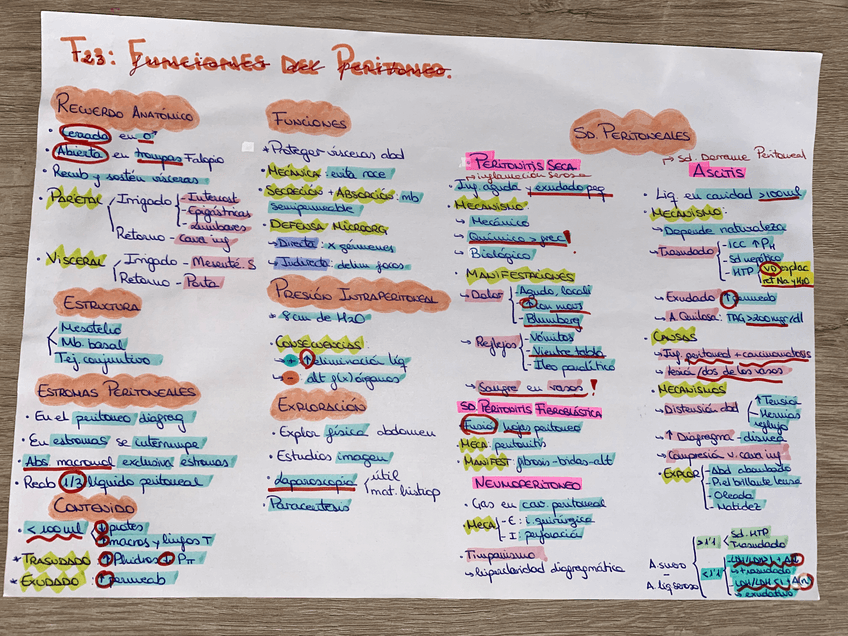 T23: Funciones del Peritoneo.
Recuerdo Anatómico
· Cerrada en ♂
· Abierta en trompas Falopio
· Recub y sostén vísceras
· Parietal
Irrigado
- Intercost
- Epigástricas
- Lumbares
Retorno - Cava inf
· Visceral
Irrigado - Mesenté. S
Retorno - Porta
Estructura
Mesotelio
Mb. basal
Tej conjuntivo
Estromas Peritoneales
· En el peritoneo diafrag
· En estromas se interrumpe
· Abs macromol exclusiva estromas
· Reab 1/2 líquido peritoneal
Contenido
· < 100 ml
↓ protes
↑ macros y linfos T
* Trasudado: ↑ Phidros ↓ Pπ
* Exudado: ↑ permeab
Funciones
* Proteger vísceras abd
· Mecánica: evita roce
· Secreción + Absorción: mb
semipermeable
· Defensa Microorg
→ Directa: x gérmenes
→ Indirecta: delim focos
Presión Intraperitoneal
* 8 cm de H2O
· Consecuencias
→ + : ↑ eliminación líq
→ - : alt f(x) órganos
Exploración
· Explor física abdomen
· Estudios imagen
· Laparoscopia
útil
mat. histiop
· Paracentesis
Sd. Peritoneales
· Peritonitis Seca
→ inflamación serosa
· Inf aguda y exudado peq
· Mecanismo
→ Mecánico
→ Químico > frec!
→ Biológico
· Manifestaciones
→ Dolor
- Agudo, locali
- ↑ con movs
- Blumberg
→ Reflejos
- Vómitos
- Vientre tabla
- Íleo paralítico
→ Sangre en vasos!
Sd. Peritonitis Fibroblástica
· Fusió hojas peritoneo
· Meca: peritonitis
· Manifest: fibrosis-bridas-alt
Neumoperitoneo
· Gas en cav. peritoneal
· Meca
- E: i. quirúrgica
- I: perforación
· Timpanismo
→ hiperclaridad diafragmática
→ Sd. Derrame Peritoneal
Ascitis
· Líq en cavidad >100 ml
· Mecanismo:
→ Depende naturaleza
→ Trasudado
- ICC ↑ PH
- Sd nefrótico
- HTP
VD esplac
ret Na y H2O
→ Exudado ↑ permeab
→ A. Quilosa: TAG >200 mg/dl
· Causas
→ Inf. peritoneal + carcinomatosis
→ lesión/obs de los vasos
· Mecanismos
→ Distensión abd
↑ Tensión
Hernias
reflujo
→ ↑ Diafragma - disnea
→ Compresión v. cava inf
· Explor
- Abd abombado
- Piel brillante lousa
- Oleada
- Matidez
A. suero
-
A. líq seroso
> 1'1
Sd. HTP
Trasudado
< 1'1
→ trasudado
→ exudativo